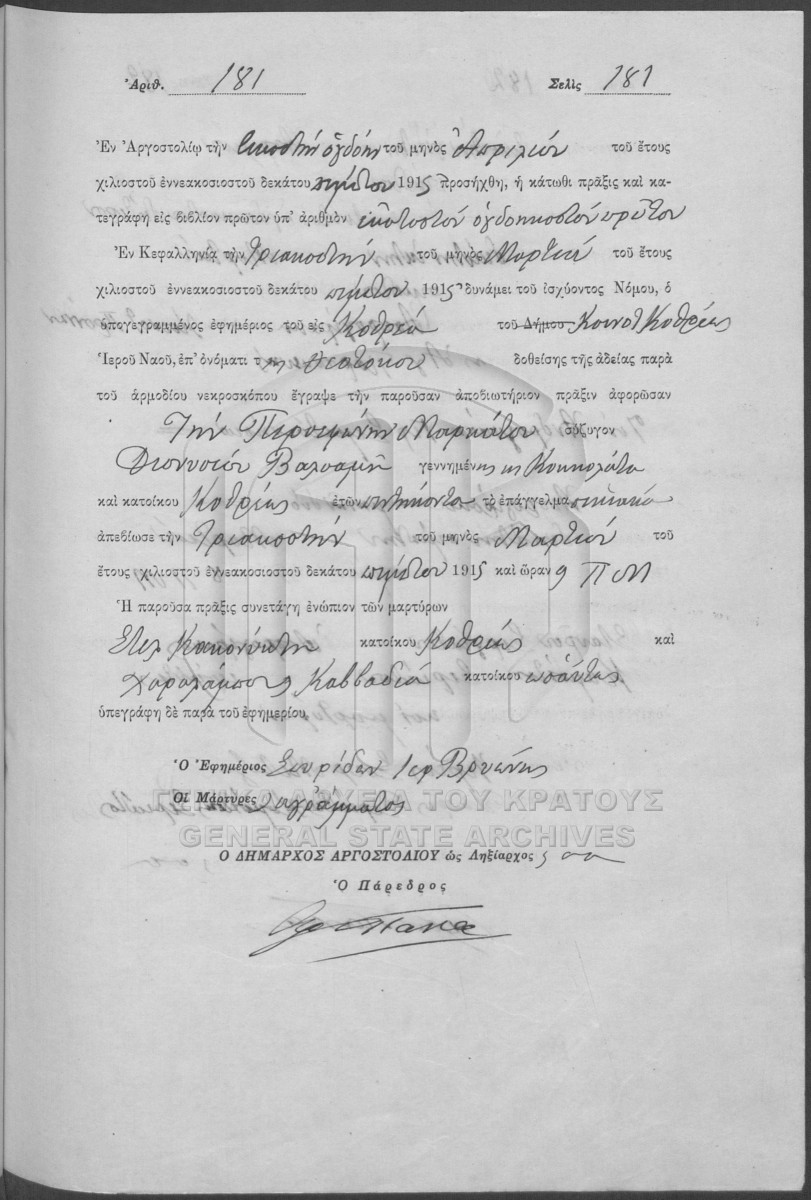 Ἀριθ. 181 Σελὶς 181
Ἐν Ἀργοστολίῳ τὴν εικοστὴν ὀγδόην τοῦ μηνὸς Ἀπριλίου τοῦ ἔτους
χιλιοστοῦ ἐννεακοσιοστοῦ δεκάτου πέμπτου 1915 προσήχθη, ἡ κάτωθι πρᾶξις καὶ κα-
τεγράφη εἰς βιβλίον πρῶτον ὑπ' ἀριθμὸν ἑκατοστὸν ὀγδοηκοστὸν πρῶτον
Ἐν Κεφαλληνίᾳ τὴν Τριακοστὴν τοῦ μηνὸς Μαρτίου τοῦ ἔτους
χιλιοστοῦ ἐννεακοσιοστοῦ δεκάτου πέμπτου 1915 δυνάμει τοῦ ἰσχύοντος Νόμου, ὁ
ὑπογεγραμμένος ἐφημέριος τοῦ εἰς Κοθρέα τοῦ Δήμου Κοινοτ Κοθρέας
Ἱεροῦ Ναοῦ, ἐπ' ὀνόματι της Θεοτόκου δοθείσης τῆς ἀδείας παρὰ
τοῦ ἁρμοδίου νεκροσκόπου ἔγραψε τὴν παροῦσαν ἀποβιωτήριον πρᾶξιν ἀφορῶσαν
Τὴν Περσεφόνην Μαρκάτου σύζυγον
Διονυσίου Βαλσαμῆ γεννημένης εις Κουκολάτα
καὶ κατοίκου Κοθρέας ἐτῶν πεντήκοντα τὸ ἐπάγγελμα οικιακὰ
ἀπεβίωσε τὴν Τριακοστὴν τοῦ μηνὸς Μαρτίου τοῦ
ἔτους χιλιοστοῦ ἐννεακοσιοστοῦ δεκάτου πέμπτου 1915 καὶ ὥραν 9 Π Μ
Ἡ παροῦσα πρᾶξις συνετάγη ἐνώπιον τῶν μαρτύρων
Στυλ κατοίκου Κοθρέας καὶ
Χαραλάμπους Καββαδιά κατοίκου ωσαύτως
ὑπεγράφη δὲ παρὰ τοῦ ἐφημερίου
Ὁ Ἐφημέριος Σπυρίδων Ιερ Βρυώνης
Οἱ Μάρτυρες αγράμματος
ΓΕΝΙΚΑ ΑΡΧΕΙΑ ΤΟΥ ΚΡΑΤΟΥΣ
GENERAL STATE ARCHIVES
Ο ΔΗΜΑΡΧΟΣ ΑΡΓΟΣΤΟΛΙΟΥ ὡς Ληξίαρχος
Ὁ Πάρεδρος